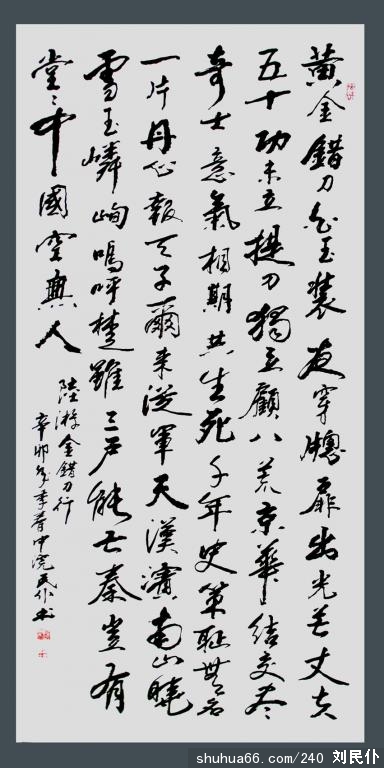 黄金錯刀白玉裝夜穿牕扉出光芒丈夫
五十功未立提刀獨立顧八荒京華結交尽
奇士意氣相期共生死千年史策耻無名
一片丹心報天子爾來從軍天漢濱南山曉
雪玉嶙峋嗚呼楚雖三戶能亡秦豈有
堂〻中國空無人
陸游金錯刀行
辛卯年季春中浣民仆书
shuhua66.com/240 刘民仆